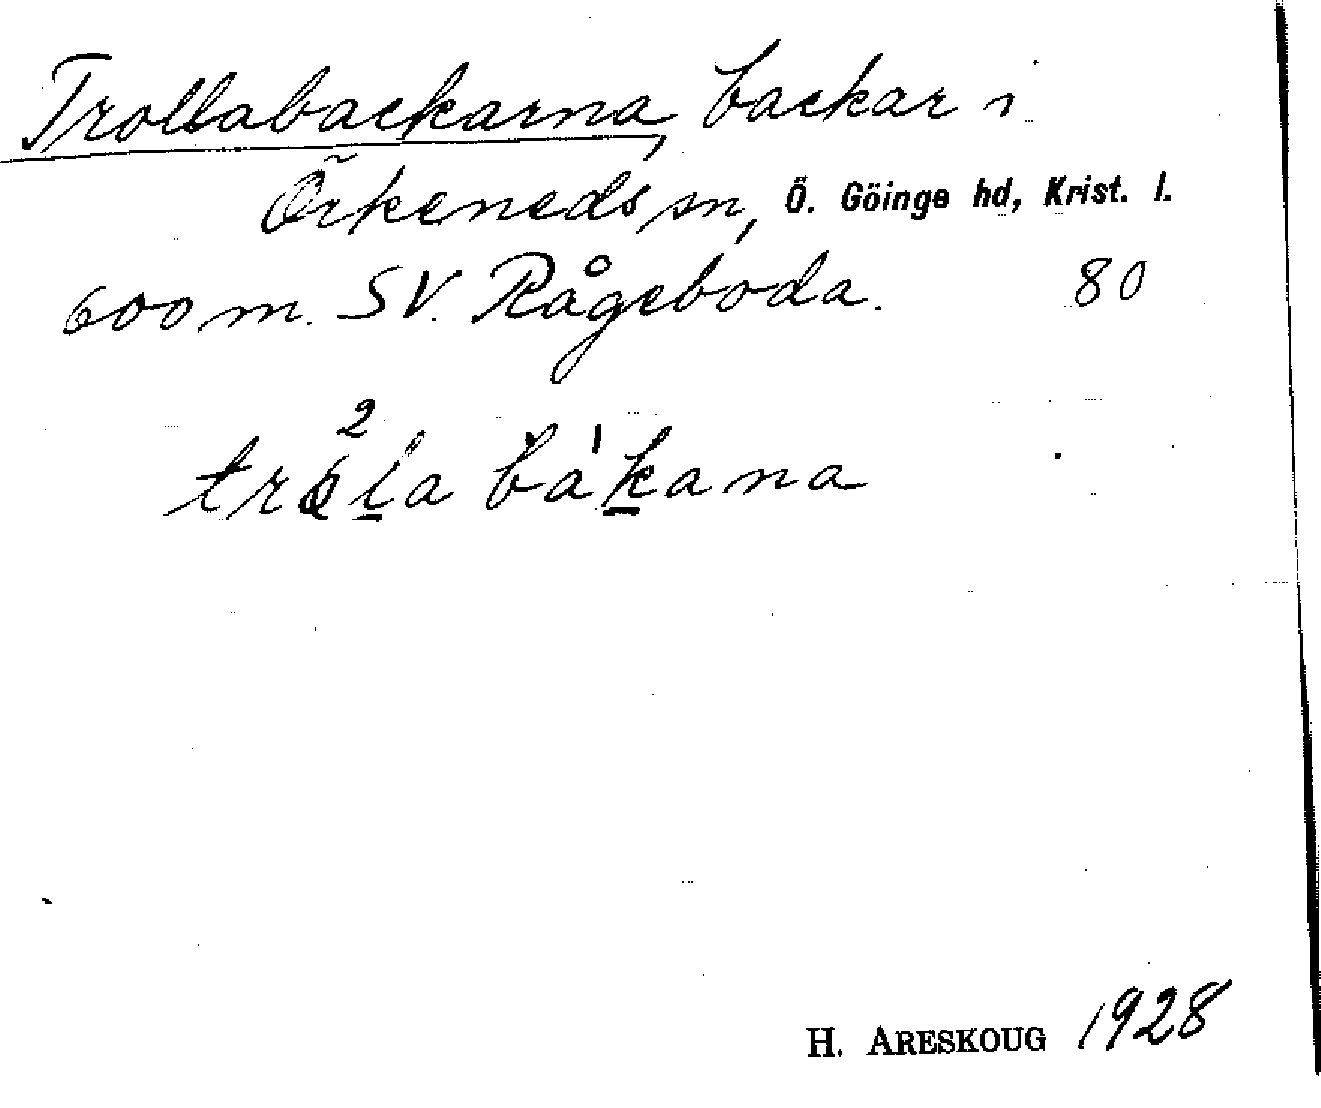 Trollabackarna, backar i
Örkeneds sn, Ö. Göinge hd, Krist. l.
600 m. SV. Rågeboda. 80
bakana
H. ARESKOUG 1928